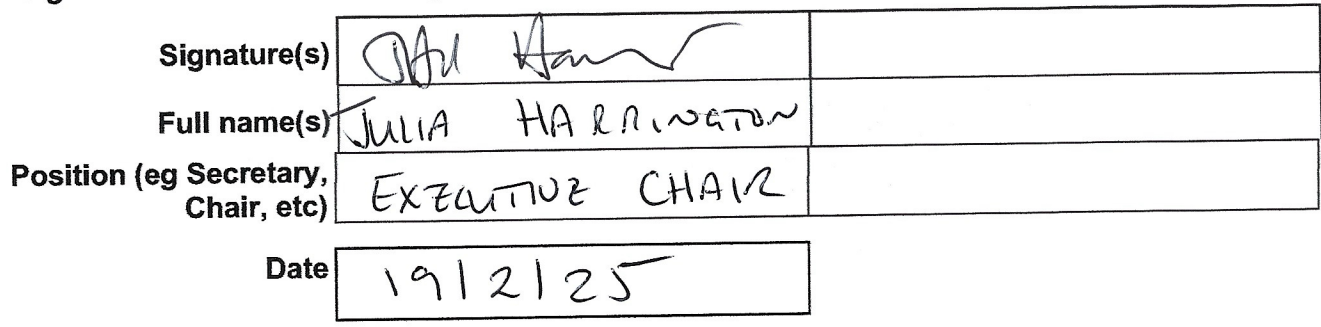 Signature(s)
Full name(s) JULIA HARRINGTON
Position (eg Secretary, Chair, etc) EXECUTIVE CHAIR
Date 19/2/25